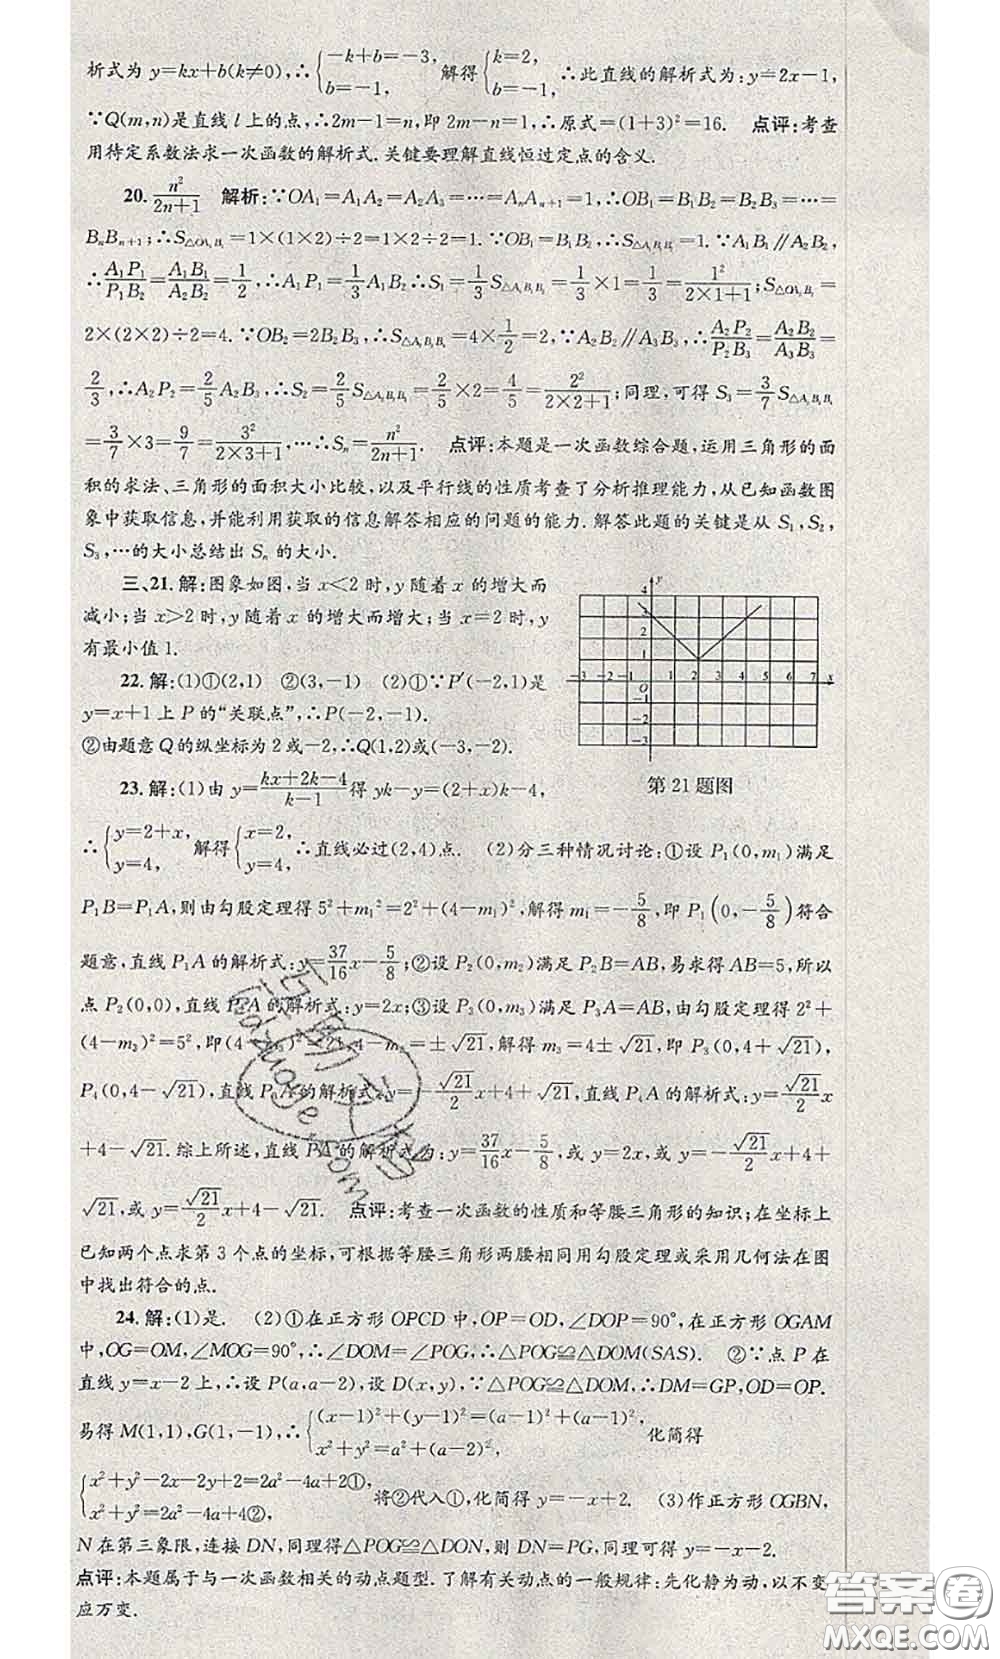 析式为 y=kx+b(k≠0),∴{-k+b=-3, b=-1, 解得{k=2, b=-1, ∴此直线的解析式为:y=2x-1,
∵Q(m,n)是直线 l 上的点,∴2m-1=n,即 2m-n=1,∴原式=(1+3)²=16. 点评:考查
用待定系数法求一次函数的解析式.关键要理解直线恒过定点的含义.
20. n²/(2n+1) 解析:∵OA₁=A₁A₂=A₂A₃=…=AₙAₙ₊₁=1,∴OB₁=B₁B₂=B₂B₃=…=
BₙBₙ₊₁;∴S△OA₁B₁=1×(1×2)÷2=1×2÷2=1.∵OB₁=B₁B₂,∴S△A₁B₁B₂=1.∵A₁B₁∥A₂B₂,
∴A₁P₁/P₁B₂=A₁B₁/A₂B₂=1/2,∴A₁P₁=1/3A₁B₂∴S₁=1/3S△A₁B₁B₂=1/3×1=1/3=1²/(2×1+1);S△OA₂B₂=
2×(2×2)÷2=4.∵OB₂=2B₂B₃,∴S△A₂B₂B₃=4×1/2=2,∵A₂B₂∥A₃B₃,∴A₂P₂/P₂B₃=A₂B₂/A₃B₃=
2/3,∴A₂P₂=2/5A₂B₃,∴S₂=2/5S△A₂B₂B₃=2/5×2=4/5=2²/(2×2+1);同理,可得 S₃=3/7S△A₃B₃B₄
=3/7×3=9/7=3²/(2×3+1),…∴Sₙ=n²/(2n+1). 点评:本题是一次函数综合题,运用三角形的面
积的求法、三角形的面积大小比较,以及平行线的性质考查了分析推理能力,从已知函数图
象中获取信息,并能利用获取的信息解答相应的问题的能力.解答此题的关键是从 S₁,S₂,
S₃,…的大小总结出 Sₙ 的大小.
三、21.解:图象如图,当 x<2 时,y 随着 x 的增大而
减小;当 x>2 时,y 随着 x 的增大而增大;当 x=2 时,y
有最小值 1.
22.解:(1)①(2,1) ②(3,-1) (2)①∵P′(-2,1)是
y=x+1 上 P 的“关联点”,∴P(-2,-1).
②由题意 Q 的纵坐标为 2 或-2,∴Q(1,2)或(-3,-2).
y
4
3
1
-3 -2 -1 O 1 2 3 4 5 6 7 x
-1
-2
-3
第 21 题图
23.解:(1)由 y=(kx+2k-4)/(k-1)得 yk-y=(2+x)k-4,
∴{y=2+x, y=4, 解得{x=2, y=4, ∴直线必过(2,4)点. (2)分三种情况讨论:①设 P₁(0,m₁)满足
P₁B=P₁A,则由勾股定理得 5²+m₁²=2²+(4-m₁)²,解得 m₁=-5/8,即 P₁(0,-5/8)符合
题意,直线 P₁A 的解析式:y=37/16x-5/8;②设 P₂(0,m₂)满足 P₂B=AB,易求得 AB=5,所以
点 P₂(0,0),直线 P₂A 的解析式:y=2x;③设 P₃(0,m₃)满足 P₃A=AB,由勾股定理得 2²+
(4-m₃)²=5²,即(4-m₃)²=21,4-m₃=±√21,解得 m₃=4±√21,即 P₃(0,4+√21),
P₄(0,4-√21),直线 P₃A 的解析式:y=-√21/2x+4+√21,直线 P₄A 的解析式:y=√21/2x
+4-√21.综上所述,直线 PA 的解析式为:y=37/16x-5/8,或 y=2x,或 y=-√21/2x+4+
√21,或 y=√21/2x+4-√21. 点评:考查一次函数的性质和等腰三角形的知识;在坐标上
已知两个点求第 3 个点的坐标,可根据等腰三角形两腰相同用勾股定理或采用几何法在图
中找出符合的点.
24.解:(1)是. (2)①在正方形 OPCD 中,OP=OD,∠DOP=90°,在正方形 OGAM
中,OG=OM,∠MOG=90°,∴∠DOM=∠POG,∴△POG≌△DOM(SAS). ②∵点 P 在
直线 y=x-2 上,∴设 P(a,a-2),设 D(x,y),∵△POG≌△DOM,∴DM=GP,OD=OP.
易得 M(1,1),G(1,-1),∴{(x-1)²+(y-1)²=(a-1)²+(a-1)², x²+y²=a²+(a-2)², 化简得
{x²+y²-2x-2y+2=2a²-4a+2①, x²+y²=2a²-4a+4②, 将②代入①,化简得 y=-x+2. (3)作正方形 OGBN,
N 在第三象限,连接 DN,同理得△POG≌△DON,则 DN=PG,同理可得 y=-x-2.
点评:本题属于与一次函数相关的动点题型.了解有关动点的一般规律:先化静为动,以不变
应万变.
答案圈
MXQE.COM